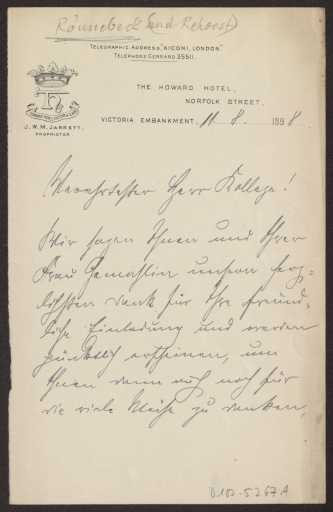 Rönnebeck (und Rehorst)
TELEGRAPHIC ADDRESS, "KICONI, LONDON."
TELEPHONE GERRARD 35511.
THE HOWARD HOTEL,
NORFOLK STREET,
VICTORIA EMBANKMENT, 11. 8. 1898.
J. W. M. JARRETT,
PROPRIETOR.
Verehrtester Herr Kollege!
Wir sagen Ihnen und Ihrer
Frau Gemahlin unsern herz-
lichsten Dank für Ihre freund-
liche Einladung und werden
pünktlich erscheinen, um
Ihnen dann auch noch für
die viele Mühe zu danken,
D.102-5267A